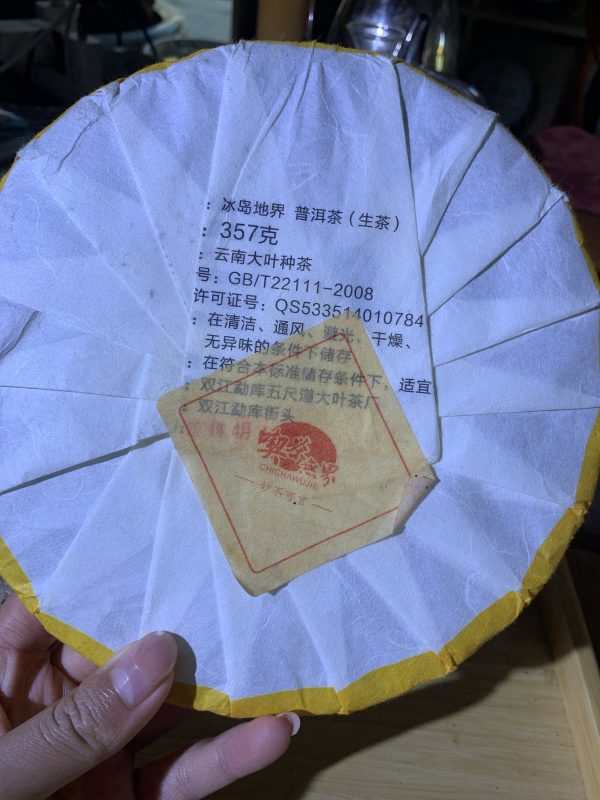 ：冰岛地界 普洱茶（生茶）
：357克
：云南大叶种茶
号：GB/T22111-2008
许可证号：QS533514010784
：在清洁、通风、避光、干燥、
无异味的条件下储存
：在符合本标准储存条件下，适宜
：双江勐库五尺道大叶茶厂
：双江勐库街头
喫茶無界
CHICHAWUJIE
妙不可言